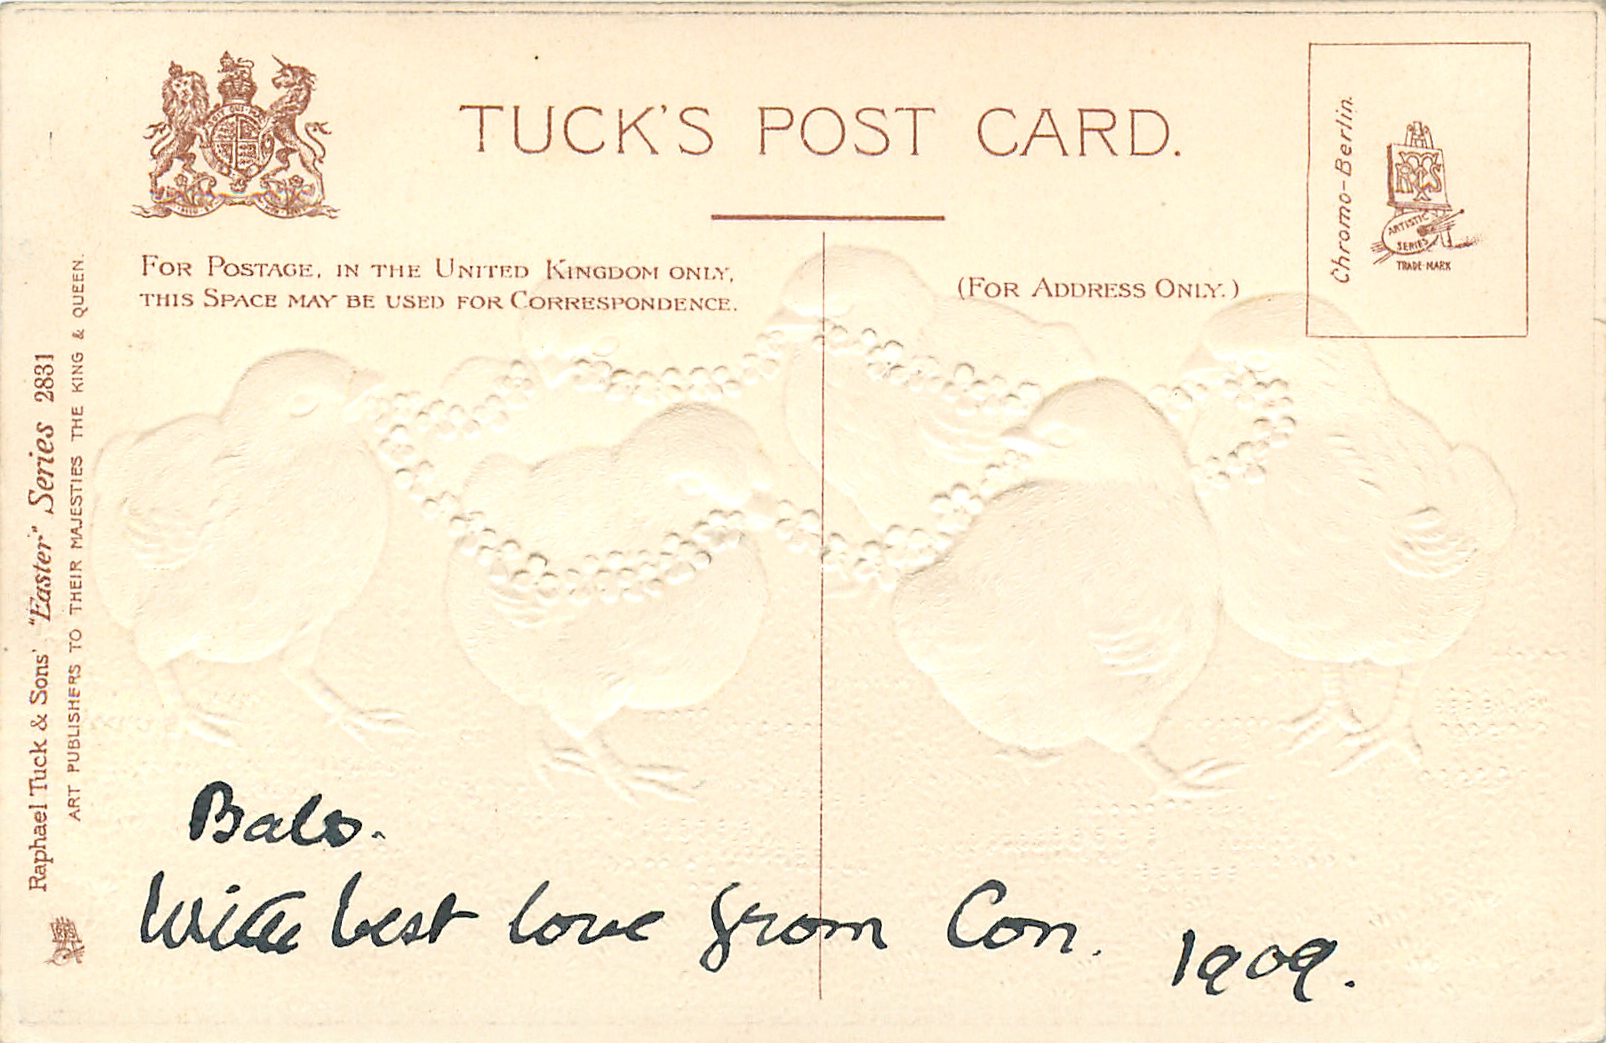 TUCK'S POST CARD.
FOR POSTAGE, IN THE UNITED KINGDOM ONLY,
THIS SPACE MAY BE USED FOR CORRESPONDENCE.
(FOR ADDRESS ONLY.)
Chromo-Berlin.
RTS
ARTISTIC
SERIES
TRADE MARK
Raphael Tuck & Sons' "Easter" Series 2831
ART PUBLISHERS TO THEIR MAJESTIES THE KING & QUEEN.
Balo.
With best love from Con. 1909.